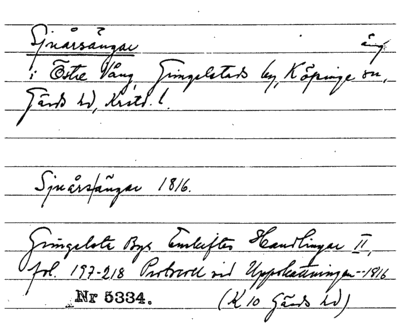 Sjuårsängar äng
i Östre Vång, Gringelstads by, Köpinge sn,
Gärds hd, Krist. l.
Sjuårs/ängar 1816.
Gringelsta Bys Enskiftes Handlingar II,
fol. 197-218 Protocoll vid Uppskattningen--1816
Nr 5334. (K 10 Gärds hd)